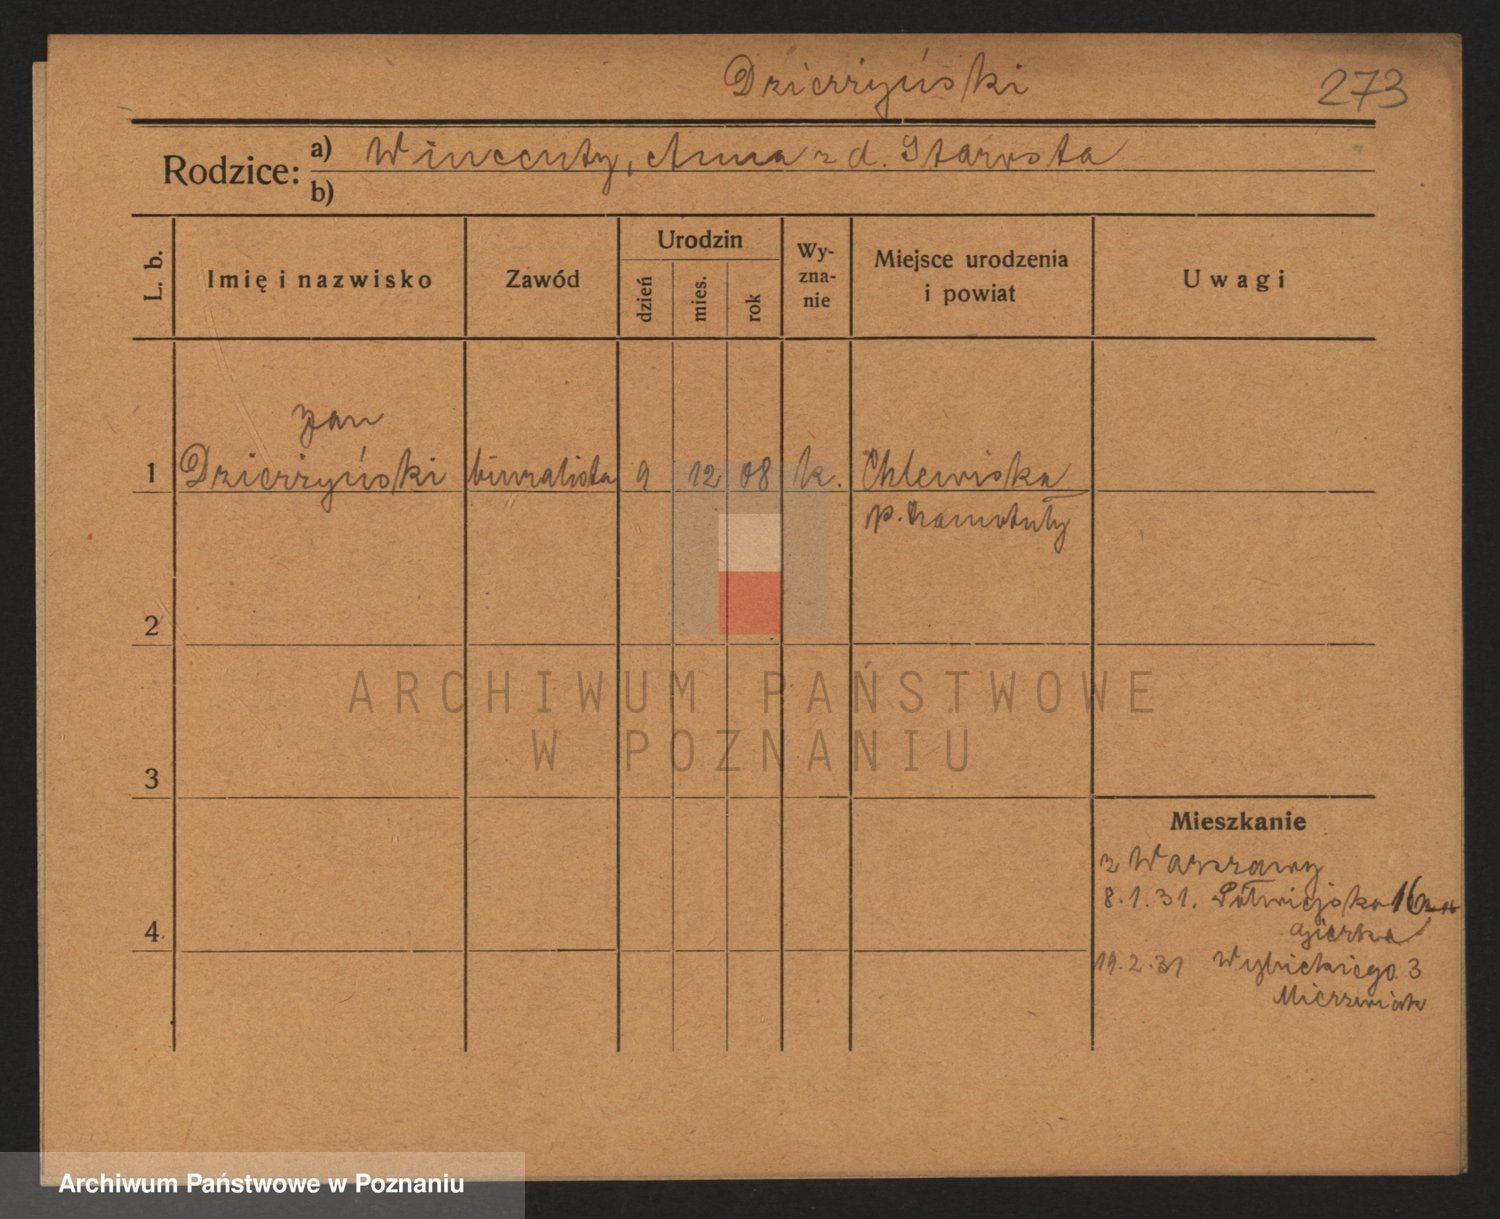 Dzierżyński
273
Rodzice:
a) Wincenty, Anna z d. Starosta
b)
L. b.
Imię i nazwisko
Zawód
Urodzin
dzień
mies.
rok
Wy-
zna-
nie
Miejsce urodzenia
i powiat
Uwagi
Jan
1 Dzierżyński biuralista 9 12 08 k. Chlewiska
p. Szamotuły
2
3
4
Mieszkanie
z Warszawy
8.1.31. Półwiejska 16
19.2.31 Wybickiego 3
ARCHIWUM PAŃSTWOWE
W POZNANIU
Archiwum Państwowe w Poznaniu